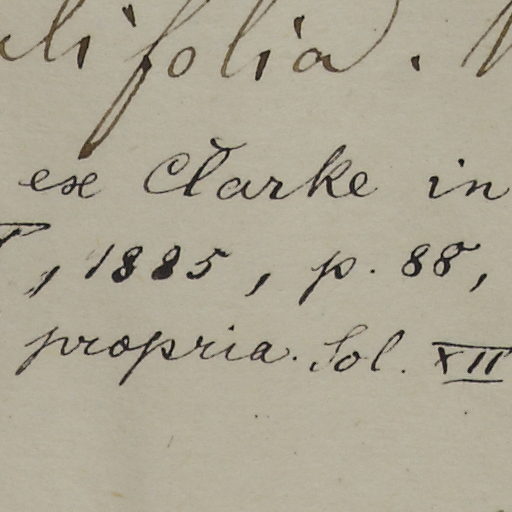 lifolia.
ex Clarke in
, 1885, p. 88,
propria. Sol. XII